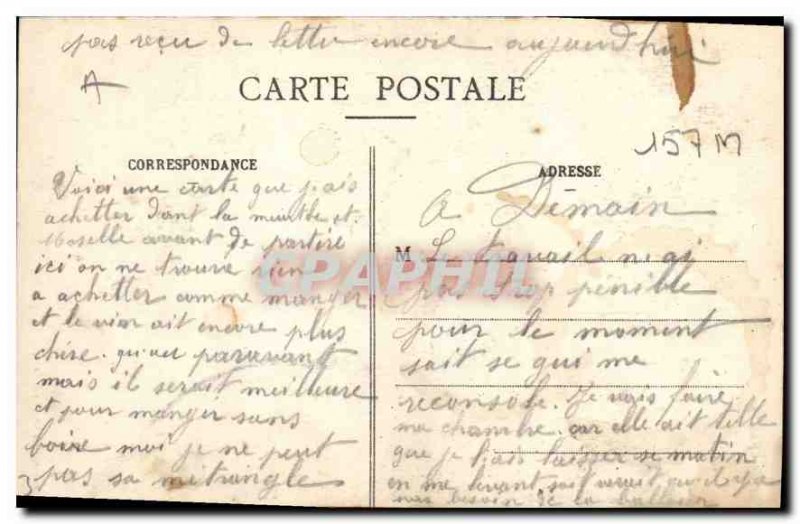 pas reçu de lettre encore aujourd'hui
A
CARTE POSTALE
157 M
CORRESPONDANCE
Voici une carte que j'ais
achetter dant la meurthe et
Moselle avant de partire
ici on ne trouve rien
a achetter comme manger
et le vin ait encore plus
chére. qu'au paravant
mais il serait meilleure
et pour manger sans
boire moi je ne peut
pas sa m'étrangle
ADRESSE
a Demain
M Le travail n'ai
pas trop pénible
pour le moment
sait se qui me
reconsole. Je vais faire
ma chambre car elle ait telle
que je l'ais laisser se matin
en me levant sait
pas besoin de la
CPAPHIL